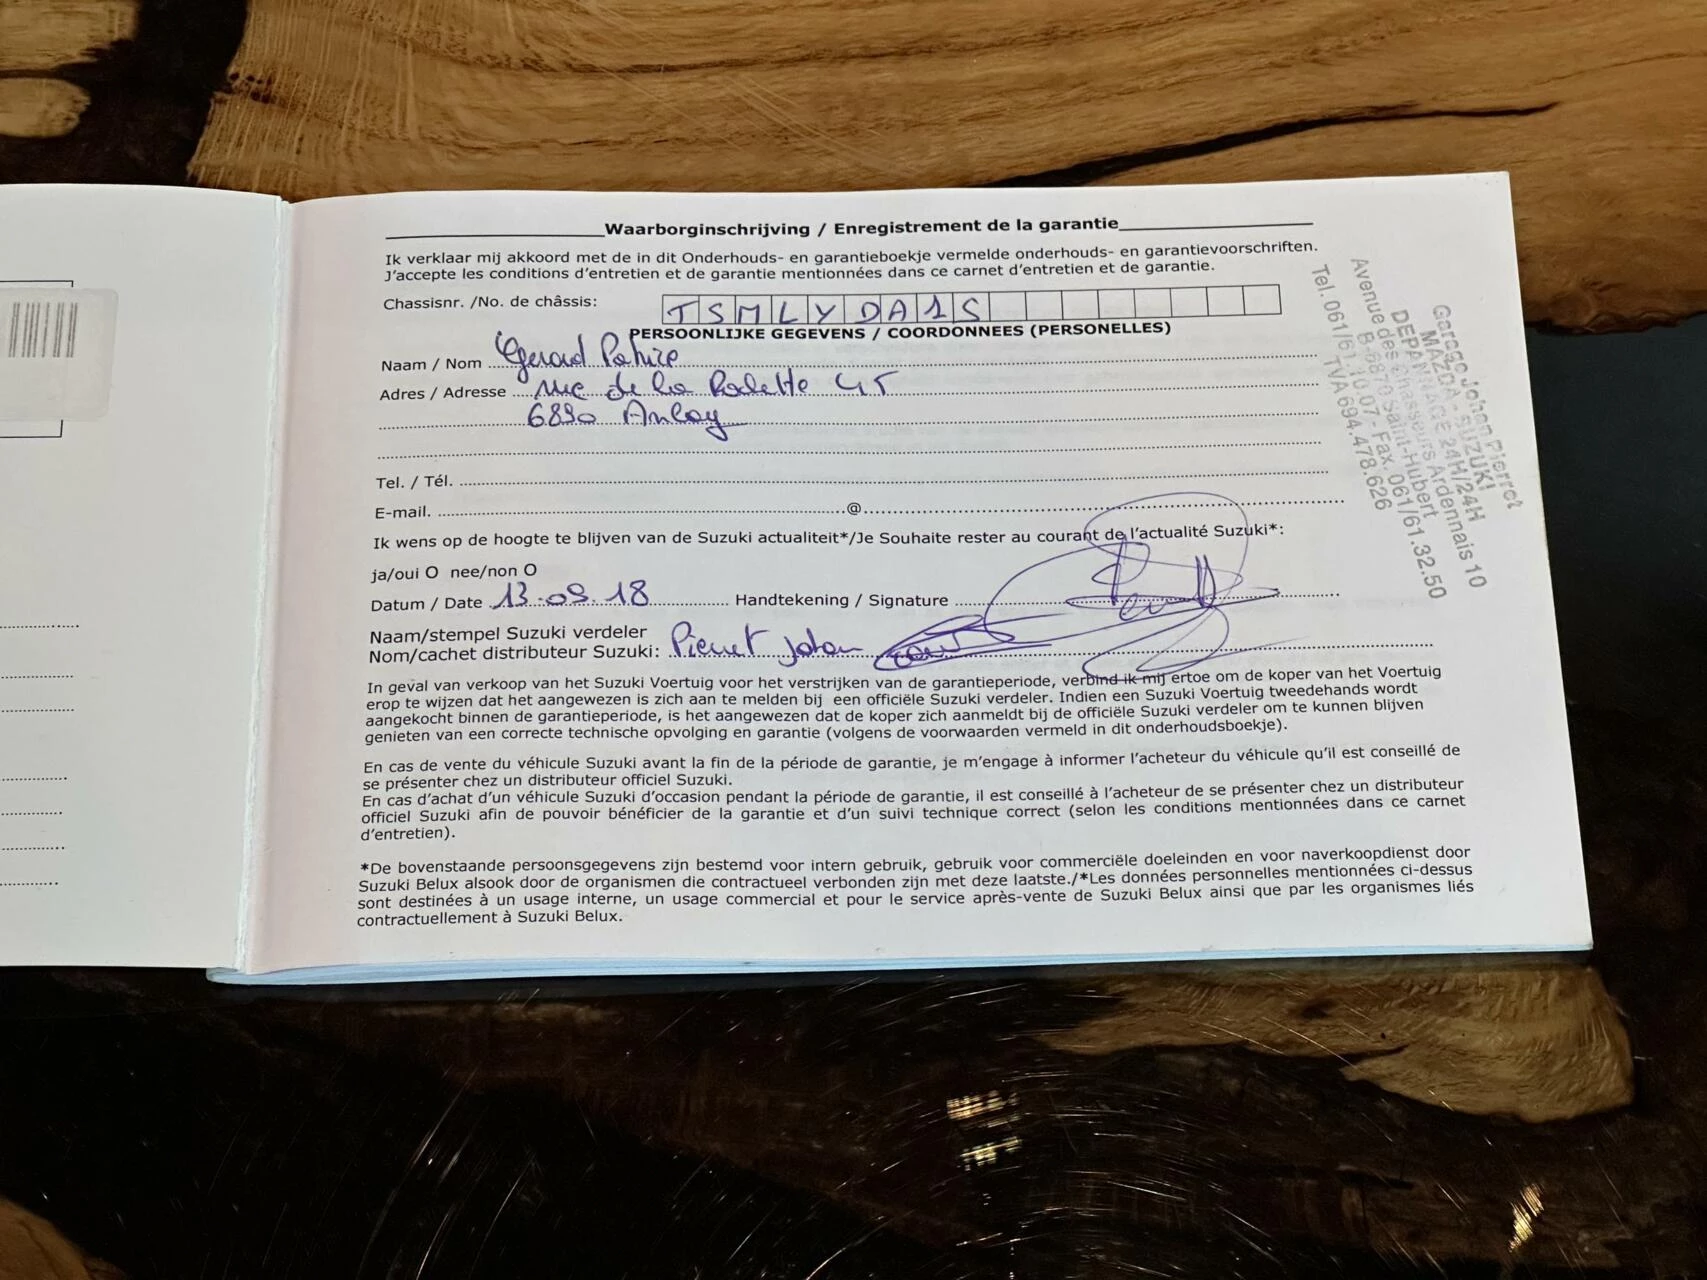 Waarborginschrijving / Enregistrement de la garantie
Ik verklaar mij akkoord met de in dit Onderhouds- en garantieboekje vermelde onderhouds- en garantievoorschriften.
J'accepte les conditions d'entretien et de garantie mentionnées dans ce carnet d'entretien et de garantie.
Chassisnr. /No. de châssis: TSMLYDA1S
PERSOONLIJKE GEGEVENS / COORDONNEES (PERSONELLES)
Naam / Nom Gerard
Adres / Adresse rue de la 45
6890 Anloy
Tel. / Tél.
E-mail. @
Ik wens op de hoogte te blijven van de Suzuki actualiteit*/Je Souhaite rester au courant de l'actualité Suzuki*:
ja/oui O nee/non O
Datum / Date 13.09.18 Handtekening / Signature
Naam/stempel Suzuki verdeler
Nom/cachet distributeur Suzuki: Pierret Johan
In geval van verkoop van het Suzuki Voertuig voor het verstrijken van de garantieperiode, verbind ik mij ertoe om de koper van het Voertuig
erop te wijzen dat het aangewezen is zich aan te melden bij een officiële Suzuki verdeler. Indien een Suzuki Voertuig tweedehands wordt
aangekocht binnen de garantieperiode, is het aangewezen dat de koper zich aanmeldt bij de officiële Suzuki verdeler om te kunnen blijven
genieten van een correcte technische opvolging en garantie (volgens de voorwaarden vermeld in dit onderhoudsboekje).
En cas de vente du véhicule Suzuki avant la fin de la période de garantie, je m'engage à informer l'acheteur du véhicule qu'il est conseillé de
se présenter chez un distributeur officiel Suzuki.
En cas d'achat d'un véhicule Suzuki d'occasion pendant la période de garantie, il est conseillé à l'acheteur de se présenter chez un distributeur
officiel Suzuki afin de pouvoir bénéficier de la garantie et d'un suivi technique correct (selon les conditions mentionnées dans ce carnet
d'entretien).
*De bovenstaande persoonsgegevens zijn bestemd voor intern gebruik, gebruik voor commerciële doeleinden en voor naverkoopdienst door
Suzuki Belux alsook door de organismen die contractueel verbonden zijn met deze laatste./*Les données personnelles mentionnées ci-dessus
sont destinées à un usage interne, un usage commercial et pour le service après-vente de Suzuki Belux ainsi que par les organismes liés
contractuellement à Suzuki Belux.
Garage Johan Pierret
MAZDA - SUZUKI
DEPANNAGE 24H/24H
Avenue des Chasseurs Ardennais 10
B-6870 Saint-Hubert
Tel. 061/61.10.07 - Fax. 061/61.32.50
TVA 694.478.626